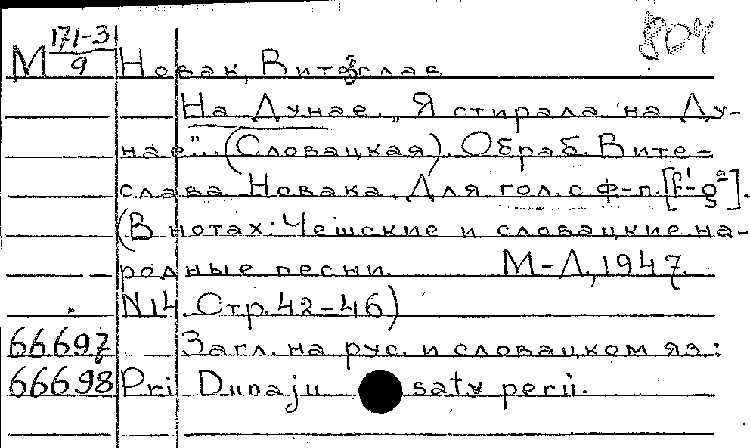 804
М 171-3/9 Новак, Витезслав
На Дунае. „Я стирала на Ду-
нае". (Словацкая). Обраб. Вите-
слава Новака. Для гол. с ф-п. [f¹-g²].
(В нотах: Чешские и словацкие на-
родные песни. М-Л, 1947.
N14. Стр. 42-46)
66697 Загл. на рус. и словацком яз.:
66698 Pri Dunaju saty perii.